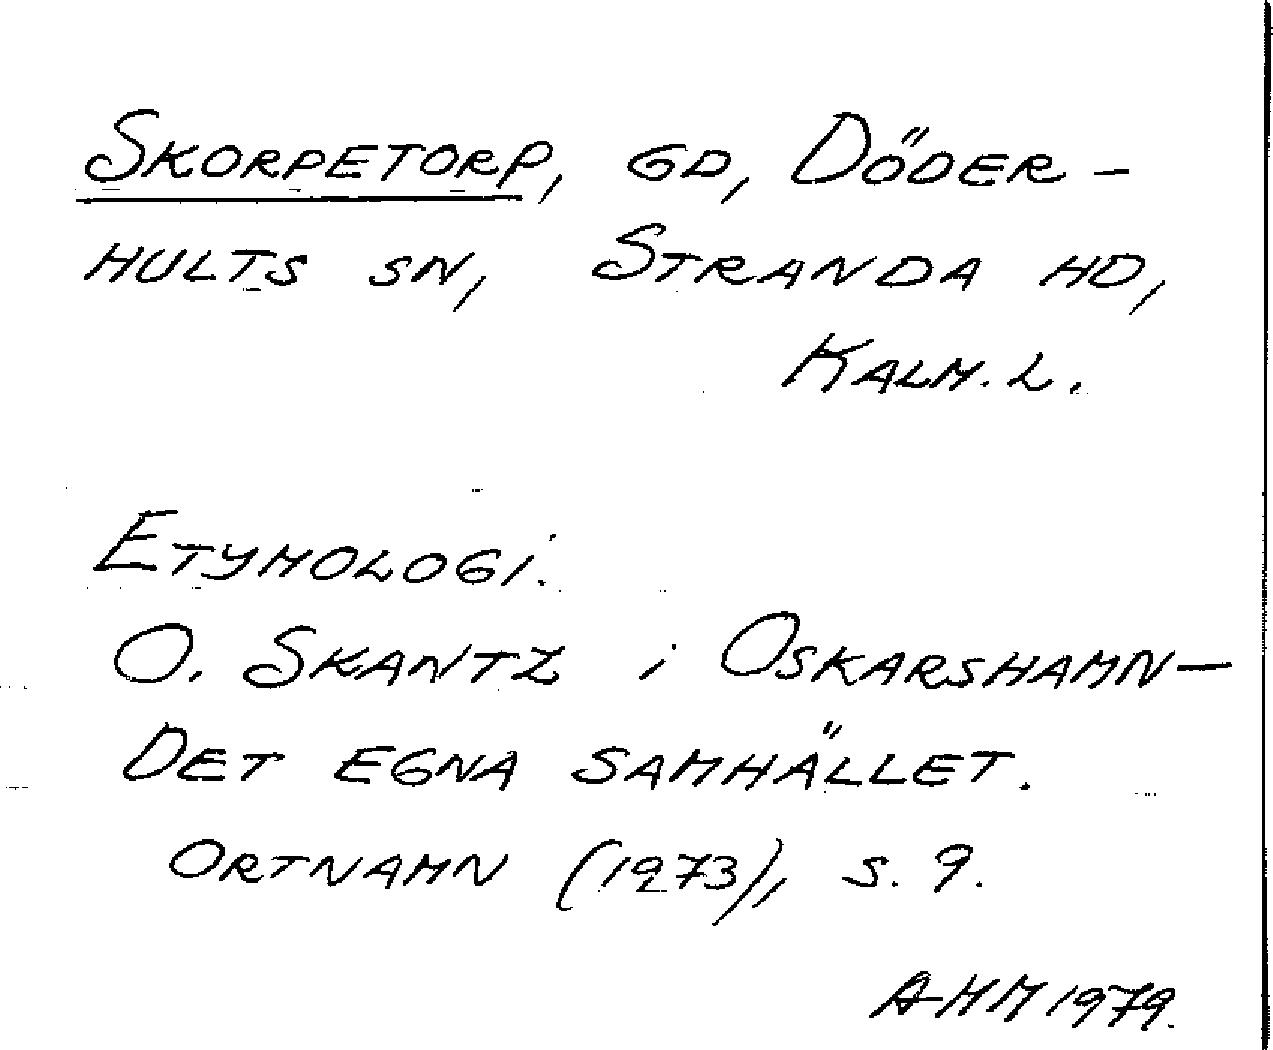 Skorpetorp, gd, Döder-
hults sn, Stranda hd,
Kalm. l.
Etymologi:
O. Skantz i Oskarshamn-
Det egna samhället.
Ortnamn (1973), s. 9.
AHM 1979.